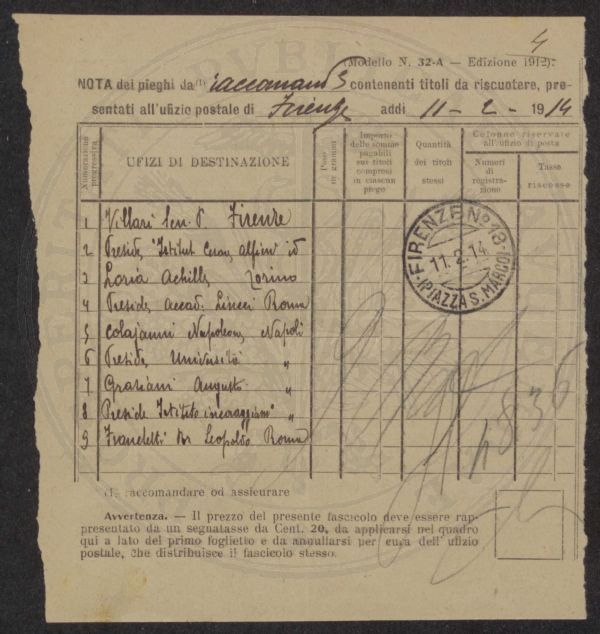 4
(Modello N. 32-A — Edizione 1912).
NOTA dei pieghi da (1) raccomand 3 contenenti titoli da riscuotere, pre-
sentati all'ufizio postale di Firenze addì 11 - 2 - 1914
Numerazione progressiva
UFIZI DI DESTINAZIONE
Peso in grammi
Importo delle somme pagabili sui titoli compresi in ciascun piego
Quantità dei titoli stessi
Colonne riservate all'ufizio di posta
Numeri di registrazione
Tasse riscosse
1 Villari Sen. P. Firenze
2 Preside, Istitut Cesar, Alfieri id
3 Loria Achille, Torino
4 Preside, Accad. Lincei Roma
5 Colajanni Napoleon, Napoli
6 Preside, Università "
7 Graziani Augusto "
8 Preside Istituto incoraggiam "
9 Franchetti Bar Leopoldo Roma
FIRENZE Nº 13
11.2.14
(PIAZZA S. MARCO)
4 8 3 6
(1) raccomandare od assicurare
Avvertenza. — Il prezzo del presente fascicolo deve essere rap-
presentato da un segnatasse da Cent. 20, da applicarsi nel quadro
qui a lato del primo foglietto e da annullarsi per cura dell'ufizio
postale, che distribuisce il fascicolo stesso.